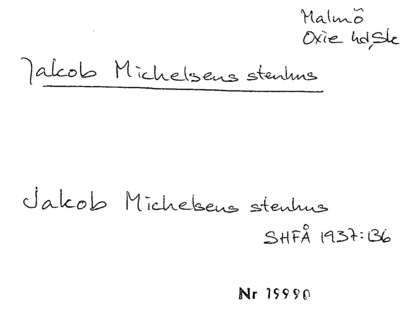 Malmö
Oxie hd, Sk
Jakob Michelsens stenhus
Jakob Michelsens stenhus
SHFÅ 1937:136
Nr 19990